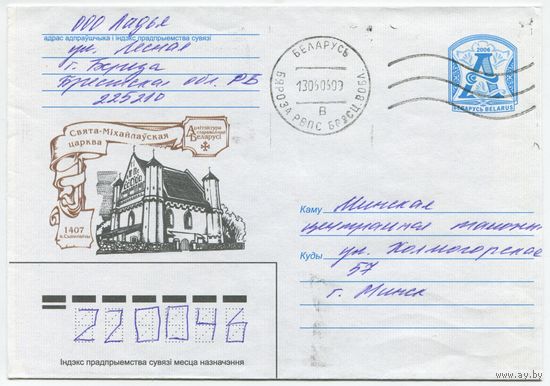 ООО Ладья
адрас адпраўшчыка і індэкс прадпрыемства сувязі
ул. Лесная
г. Береза
Брестская обл. РБ
225210
БЕЛАРУСЬ
13050609
В
БЯРОЗА РВПС БРЭСЦ. ВОБЛ.
2006
А
БЕЛАРУСЬ BELARUS
Свята-Міхайлаўская
царква
Архітэктура
Беларусі
1407
Каму Минская
центральная таможня
Куды ул. Холмогорская
57
г. Минск
220046
Індэкс прадпрыемства сувязі месца назначэння
www.ay.by